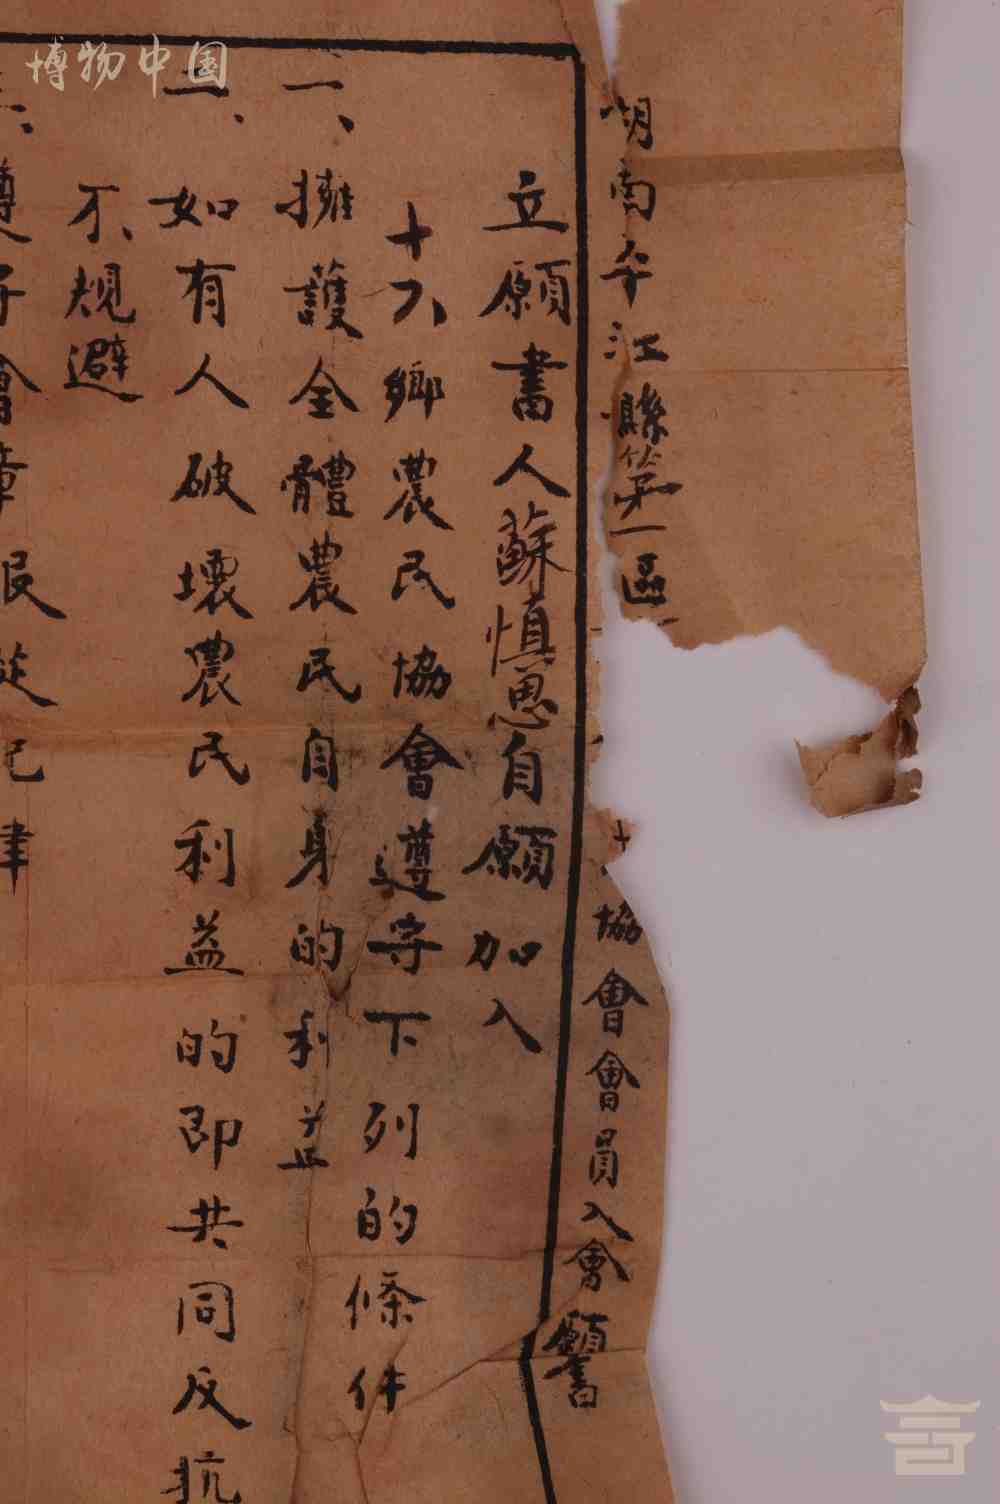 湖南平江縣第一區
協會會員入會願書
立願書人蘇慎思自願加入
十六鄉農民協會遵守下列的條件
一、擁護全體農民自身的利益
二、如有人破壞農民利益的即共同反抗
不規避
三、遵守會章服從紀律
博物中国